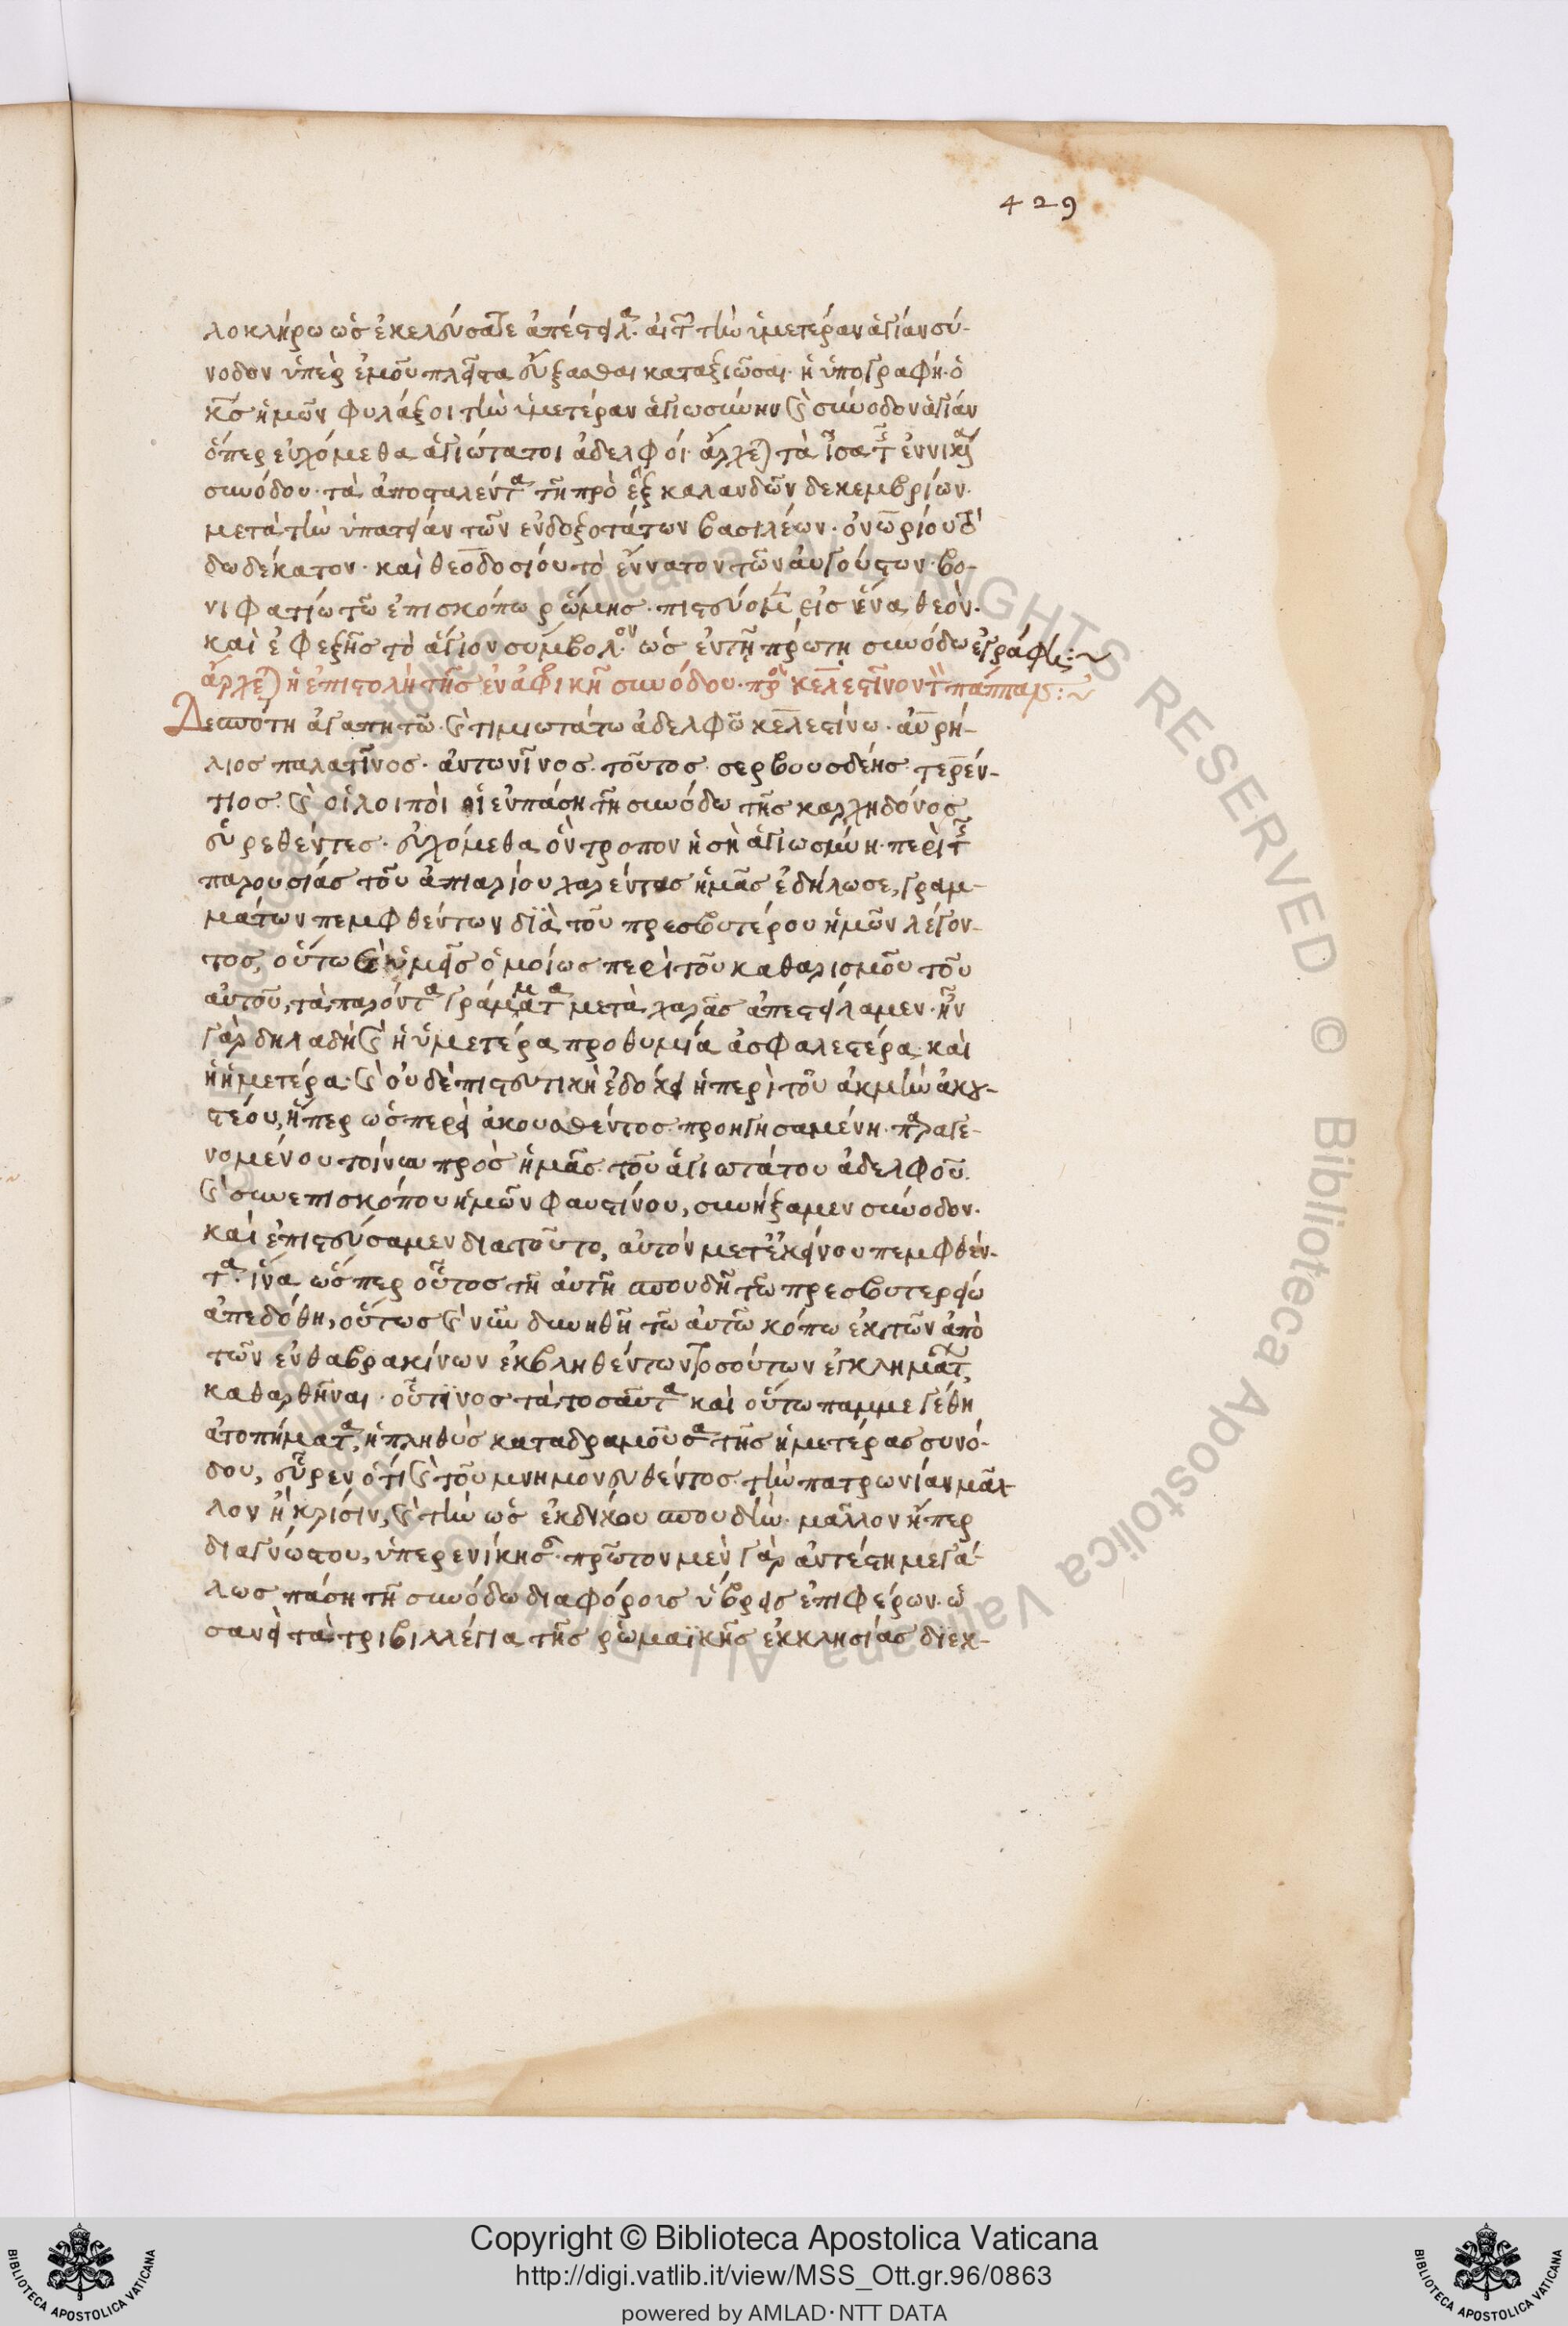 429
λοκλήρω ὡς ἐκελεύσατε ἀπέστειλα. αἰτῶ τὴν ὑμετέραν ἁγίαν σύ-
νοδον ὑπὲρ ἐμοῦ πλεῖστα εὔξασθαι καταξιῶσαι· ἡ ὑπογραφή· ὁ
κς ἡμῶν φυλάξοι τὴν ὑμετέραν ἁγιωσύνην καὶ σύνοδον ἁγίαν
ὅπερ εὐχόμεθα ἁγιώτατοι ἀδελφοί· ἄρχεται τὰ ἶσα τῆς ἐν νικαία
συνόδου· τὰ ἀποσταλέντα τῆ πρὸ ἓξ καλανδῶν δεκεμβρίων·
μετὰ τὴν ὑπατείαν τῶν ἐνδοξοτάτων βασιλέων· ὀνωρίου τὸ
δωδέκατον· καὶ θεοδοσίου τὸ ἔννατον τῶν αὐγούστων· βο-
νιφατίω τῶ ἐπισκόπω ῥώμης· πιστεύομεν εἰς ἕνα θεόν·
καὶ ἐφεξῆς τὸ ἅγιον σύμβολον ὡς ἐν τῆ πρώτη συνόδω ἐγράφη :~
ἄρχεται ἡ ἐπιστολὴ τῆς ἐν ἀφρικῆ συνόδου· πρὸς κελεστῖνον τὸν πάππαν :~
Δεσπότη ἀγαπητῶ· καὶ τιμιωτάτω ἀδελφῶ κελεστίνω· αὐρή-
λιος παλατῖνος· ἀντωνῖνος· τοῦτος· σερβουσδέης· τερέν-
τιος· καὶ οἱ λοιποὶ οἱ ἐν πάση τῆ συνόδω τῆς καρχηδόνος
εὑρεθέντες· εὐχόμεθα ὃν τροπον ἡ σὴ ἁγιωσύνη· περὶ τῆς
παρουσίας τοῦ ἀπιαρίου χαρέντας ἡμᾶς ἐδήλωσε, γραμ-
μάτων πεμφθέντων διὰ τοῦ πρεσβυτέρου ἡμῶν λέγον-
τος, οὕτω καὶ ἡμεῖς ὁμοίως περὶ τοῦ καθαρισμοῦ τοῦ
αὐτοῦ, τὰ παρόντα γράμματα μετὰ χαρᾶς ἀπεστείλαμεν· ἦν
γὰρ δηλαδὴ καὶ ἡ ὑμετέρα προθυμία ἀσφαλεστέρα· καὶ
ἡ ἡμετέρα· καὶ οὐδὲ πιστευτικὴ ἐδόκει ἡ περὶ τοῦ ἀκμὴν ἀκου-
στέου, ἤπερ ὡς περὶ ἀκουσθέντος προηγησαμένη· παραγε-
νομένου τοίνυν πρὸς ἡμᾶς τοῦ ἁγιωτάτου ἀδελφοῦ·
καὶ συνεπισκόπου ἡμῶν φαυστίνου, συνήξαμεν σύνοδον·
καὶ ἐπιστεύσαμεν διατοῦτο, αὐτὸν μετ' ἐκείνου πεμφθέν-
τα· ἵνα ὥσπερ οὗτος τῆ αὐτῆ σπουδῆ τῶ πρεσβυτερείω
ἀπεδόθη, οὕτως καὶ νῦν δυνηθῆ τῶ αὐτῶ κόπω ἐκ τῶν ἀπὸ
τῶν ἐνθαβρακίνων ἐκβληθέντων τοσούτων ἐγκλημάτων,
καθαρθῆναι· οὗτινος τὰ τοσαῦτα καὶ οὕτω παμμεγέθη
ἀτοπήματα, ἡ πληθὺς καταδραμοῦσα τῆς ἡμετέρας συνό-
δου, εὗρεν ὅτι καὶ τοῦ μνημονευθέντος τὴν πατρωνίαν μᾶλ-
λον ἢ κρίσιν, καὶ τὴν ὡς ἐκδίκου σπουδὴν· μᾶλλον ἤπερ
διαγνώστου, ὑπερενίκησε· πρῶτον μὲν γὰρ ἀντέστη μεγά-
λως πάση τῆ συνόδω διαφόροις ὕβρεις ἐπιφέρων· ὡ
σανεὶ τὰ τριβιλλέγια τῆς ῥωμαϊκῆς ἐκκλησίας διεκ-
Copyright © Biblioteca Apostolica Vaticana
http://digi.vatlib.it/view/MSS_Ott.gr.96/0863
powered by AMLAD · NTT DATA
BIBLIOTECA APOSTOLICA VATICANA
BIBLIOTECA APOSTOLICA VATICANA